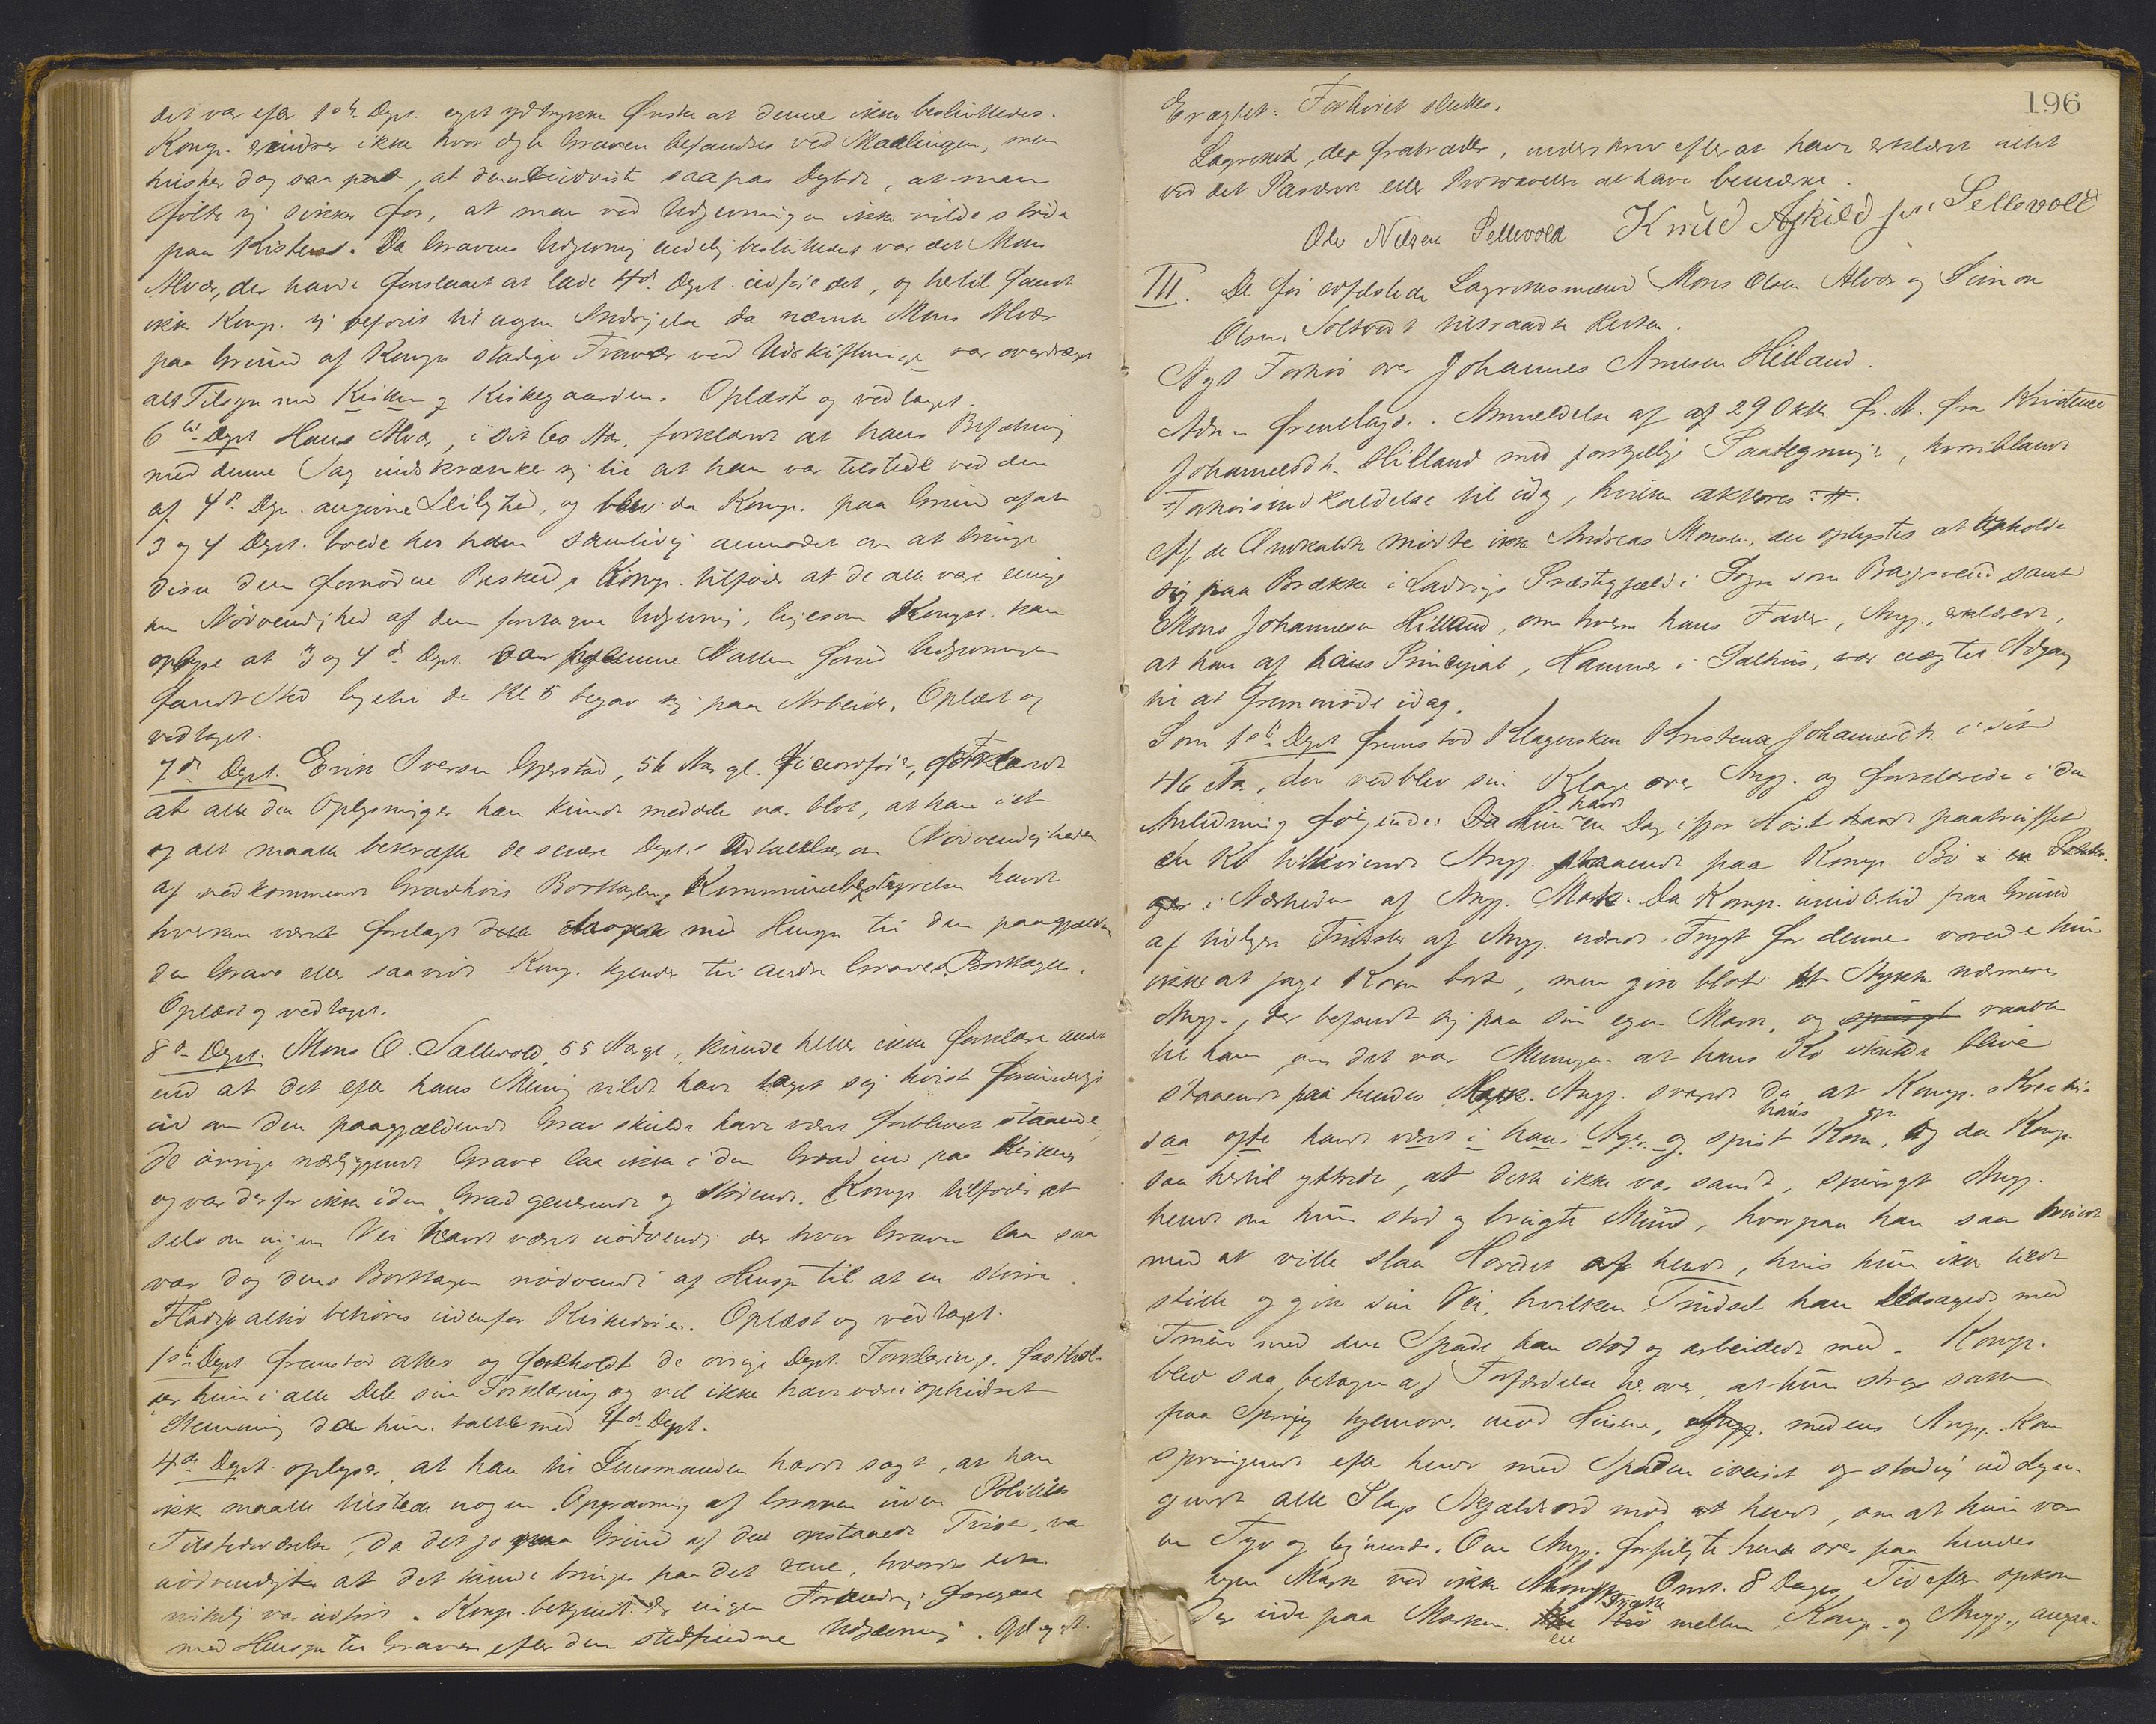 det var efter 1ste Dept. eget ydtrykte Ønske at denne ikke besluttedes.
Komp. erindrer ikke hvor dyb Graven befandtes ved Maalingen, men
husker dog saa , at den udviste saapas Dybde, at man
følte sig sikker for, at man ved Udjevningen ikke vilde støde
paa Kisten. Da Gravens Udjevning endelig besluttedes var det Mons
Alvær, der havde foreslaaet at lade 4de Dept. udføre det, og hertil fandt
ikke Komp. sig beføiet til nogen Indsigelse da nævnte Mons Alvær
paa Grund af Komps stadige Fravær ved Udskiftninger var overdraget
alt Tilsyn med Kirken og Kirkegaarden. Oplæst og vedtaget.
6te Dept Hans Alvær, i sit 60 Aar, forklarede at hans Befatning
med denne Sag indskrænker sig til at han var tilstede ved den
af 4de Dep. angivne Leilighed, og blev da Komp. paa Grund af at
3 og 4 Dept. boede hos ham samtidig anmodet om at bringe
disse den fornødne Besked. Komp. tilføier at de alle vare enige
om Nødvendighed af den foretagne Udjevning, ligesom Komp. kan
oplyse at 3 og 4de Dept. var hjemme Natten forud Udjevningen
fandt Sted ligetil de Kl 5 begav sig paa Arbeide. Oplæst og
vedtaget.
7de Dept. Erik Iversen Gjerstad, 56 Aar gl. forklarede
at alle den Oplysninger han kunde meddele var blot, at han i et
og alt maatte bekræfte de senere Dept.s Udtalelser om Nødvendigheden
af vedkommende Gravhøis Borttagen. Kommunebestyrelsen havde
hverken været forelagt dette med Hensyn til den paagjælden
de Grave eller saavidt Komp. kjender til andre Graves Borttagen.
Oplæst og vedtaget.
8de Dept. Mons O. Sællevold, 55 Aar gl, kunde heller ikke forklare andet
end at det efter hans Mening vilde have taget sig høist
ud om den paagjældende Grav skulde have været forbleven staaende,
de øvrige nærliggende Grave laa ikke i den Grad ind paa Kirken
og var derfor ikke i den Grad generende og stødende. Komp. tilføier at
selv om ingen Vei havde været nødvendig der hvor Graven laa saa
var dog dens Borttagen nødvendig af Hensyn til at en større
Pladsp altid behøves udenfor Kirkedøren. Oplæst og vedtaget.
1ste Dept. fremstod atter og foreholdt de øvrige Dept. Forklaringer fasthol-
der hun i alle Dele sin Forklaring og vil ikke have været i ophidset
Stemning da hun talte med 4de Dept.
4de Dept. oplyser, at han til Lensmanden havde sagt, at han
ikke maatte tilstede nogen Opgravning af Graven uden Politiets
Tilstedeværelse, da det jo paa Grund af den opstaaede Tvist, var
nødvendigt at det kunde bringes paa det rene, hvad der
virkelig var udført. Komp. bekjendt er ingen foregaaet
med Hensyn til Graven efter den stedfundne Udjevning. Opl og vdt.
196
Eragtet: Forhøret sluttes.
Lagrettet, der fratræder, underskrev efter at have erklæret intet
ved det Passerede eller Protokollen at have bemærke.
Ole Nilsen Sellevold Knud Askildsen Sellevold
III. De før edfæstede Lagrettesmænd Mons Olsen Alvær og Simon
Olsen Soltvedt tiltraadte Retten.
Nyt Forhør over Johannes Arnesen Hilland.
Adm. fremlagde. Anmeldelse af 29 Okt. f. A. fra Kristense
Johannesdtr. Hilland med forskjellige Paategninger, hvoriblandt
Forhørsindkaldelse til idag, hvilken akteres: #.
Af de Indkaldte mødte ikke Andreas Monsen, der oplystes at opholde
sig paa Brække i Ladvigs Præstegjeld i Sogn som Bagersvend samt
Mons Johannesen Hilland, om hvem hans Fader, Angj., erklærede,
at han af hans Principal, Hammer i Salhus, var nægtet Adgang
til at fremmøde idag.
Som 1ste Dept fremstod Klagersken Kristense Johannesdtr. i sit
46 Aar, der vedblev sin Klage over Angj. og forklarede i den
Anledning følgende: Da Hun havde en Dag ifjor Høst paatruffet
en Ko tilhørende Angj. staaende paa Komp. Bø
i Nærheden af Angj. Mark. Da Komp. imidlertid paa Grund
af tidligere Trudsler af Angj. nærede Frygt for denne vovede hun
ikke at jage Koen bort, men gik blot et Stykke nærmere
Angj., der befandt sig paa sin egen Mark, og spurgte raabte
til ham, om det var Meningen at hans Ko skulde blive
staaende paa hendes Mark. Angj. svarede da, at Komp. Kreatur
saa ofte havde været i hans Ager og spist hans Korn, og da Komp.
saa hertil yttrede, at dette ikke var sandt, spurgte Angj.
hende om hun stod og brugte Mund, hvorpaa han saa truede
med at ville slaa Hovedet af hende, hvis hun ikke tiede
stille og gik sin Vei, hvilken Trudsel han ledsagede med
Truen med den Spade han stod og arbeidede med. Komp.
blev saa betagen af Forfærdelse herover, at hun strax satte
paa Sprang hjemover mod Husene, Angj. medens Angj. kom
springende efter hende med Spaden iveiret og stadig udslyn-
gende alle Slags Skjældsord mod hende, om at hun var
en Tyv og lignende. Om Angj. forfulgte hende over paa hendes
egen Mark ved ikke Komp. Omt. 8 Dages Tid efter opkom
der ude paa Marken en Trætte mellem Komp. og Angj., angaa-